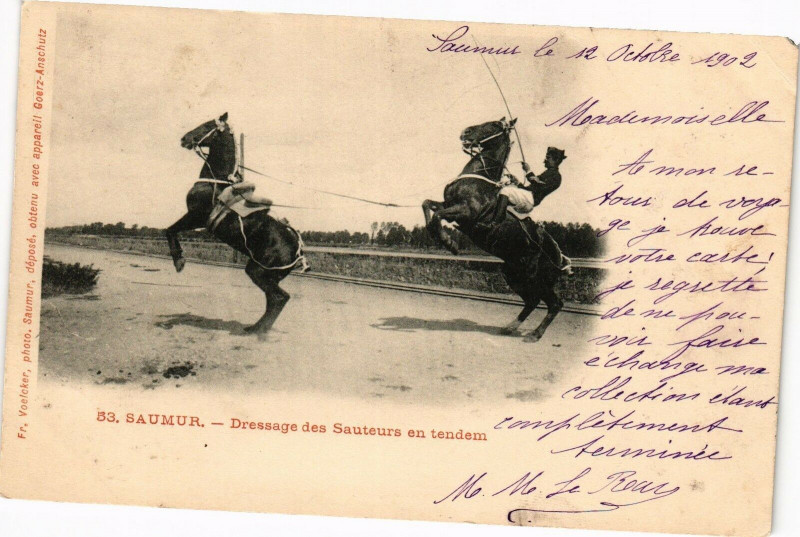 Saumur le 12 Octobre 1902
Mademoiselle
A mon re-
tour de voya-
ge je trouve
votre carte;
je regrette
de ne pou-
voir faire
échange ma
collection étant
complètement
terminée
M. M. Le
53. SAUMUR. — Dressage des Sauteurs en tendem
Fr. Voelcker, photo. Saumur, déposé, obtenu avec appareil Goerz-Anschutz